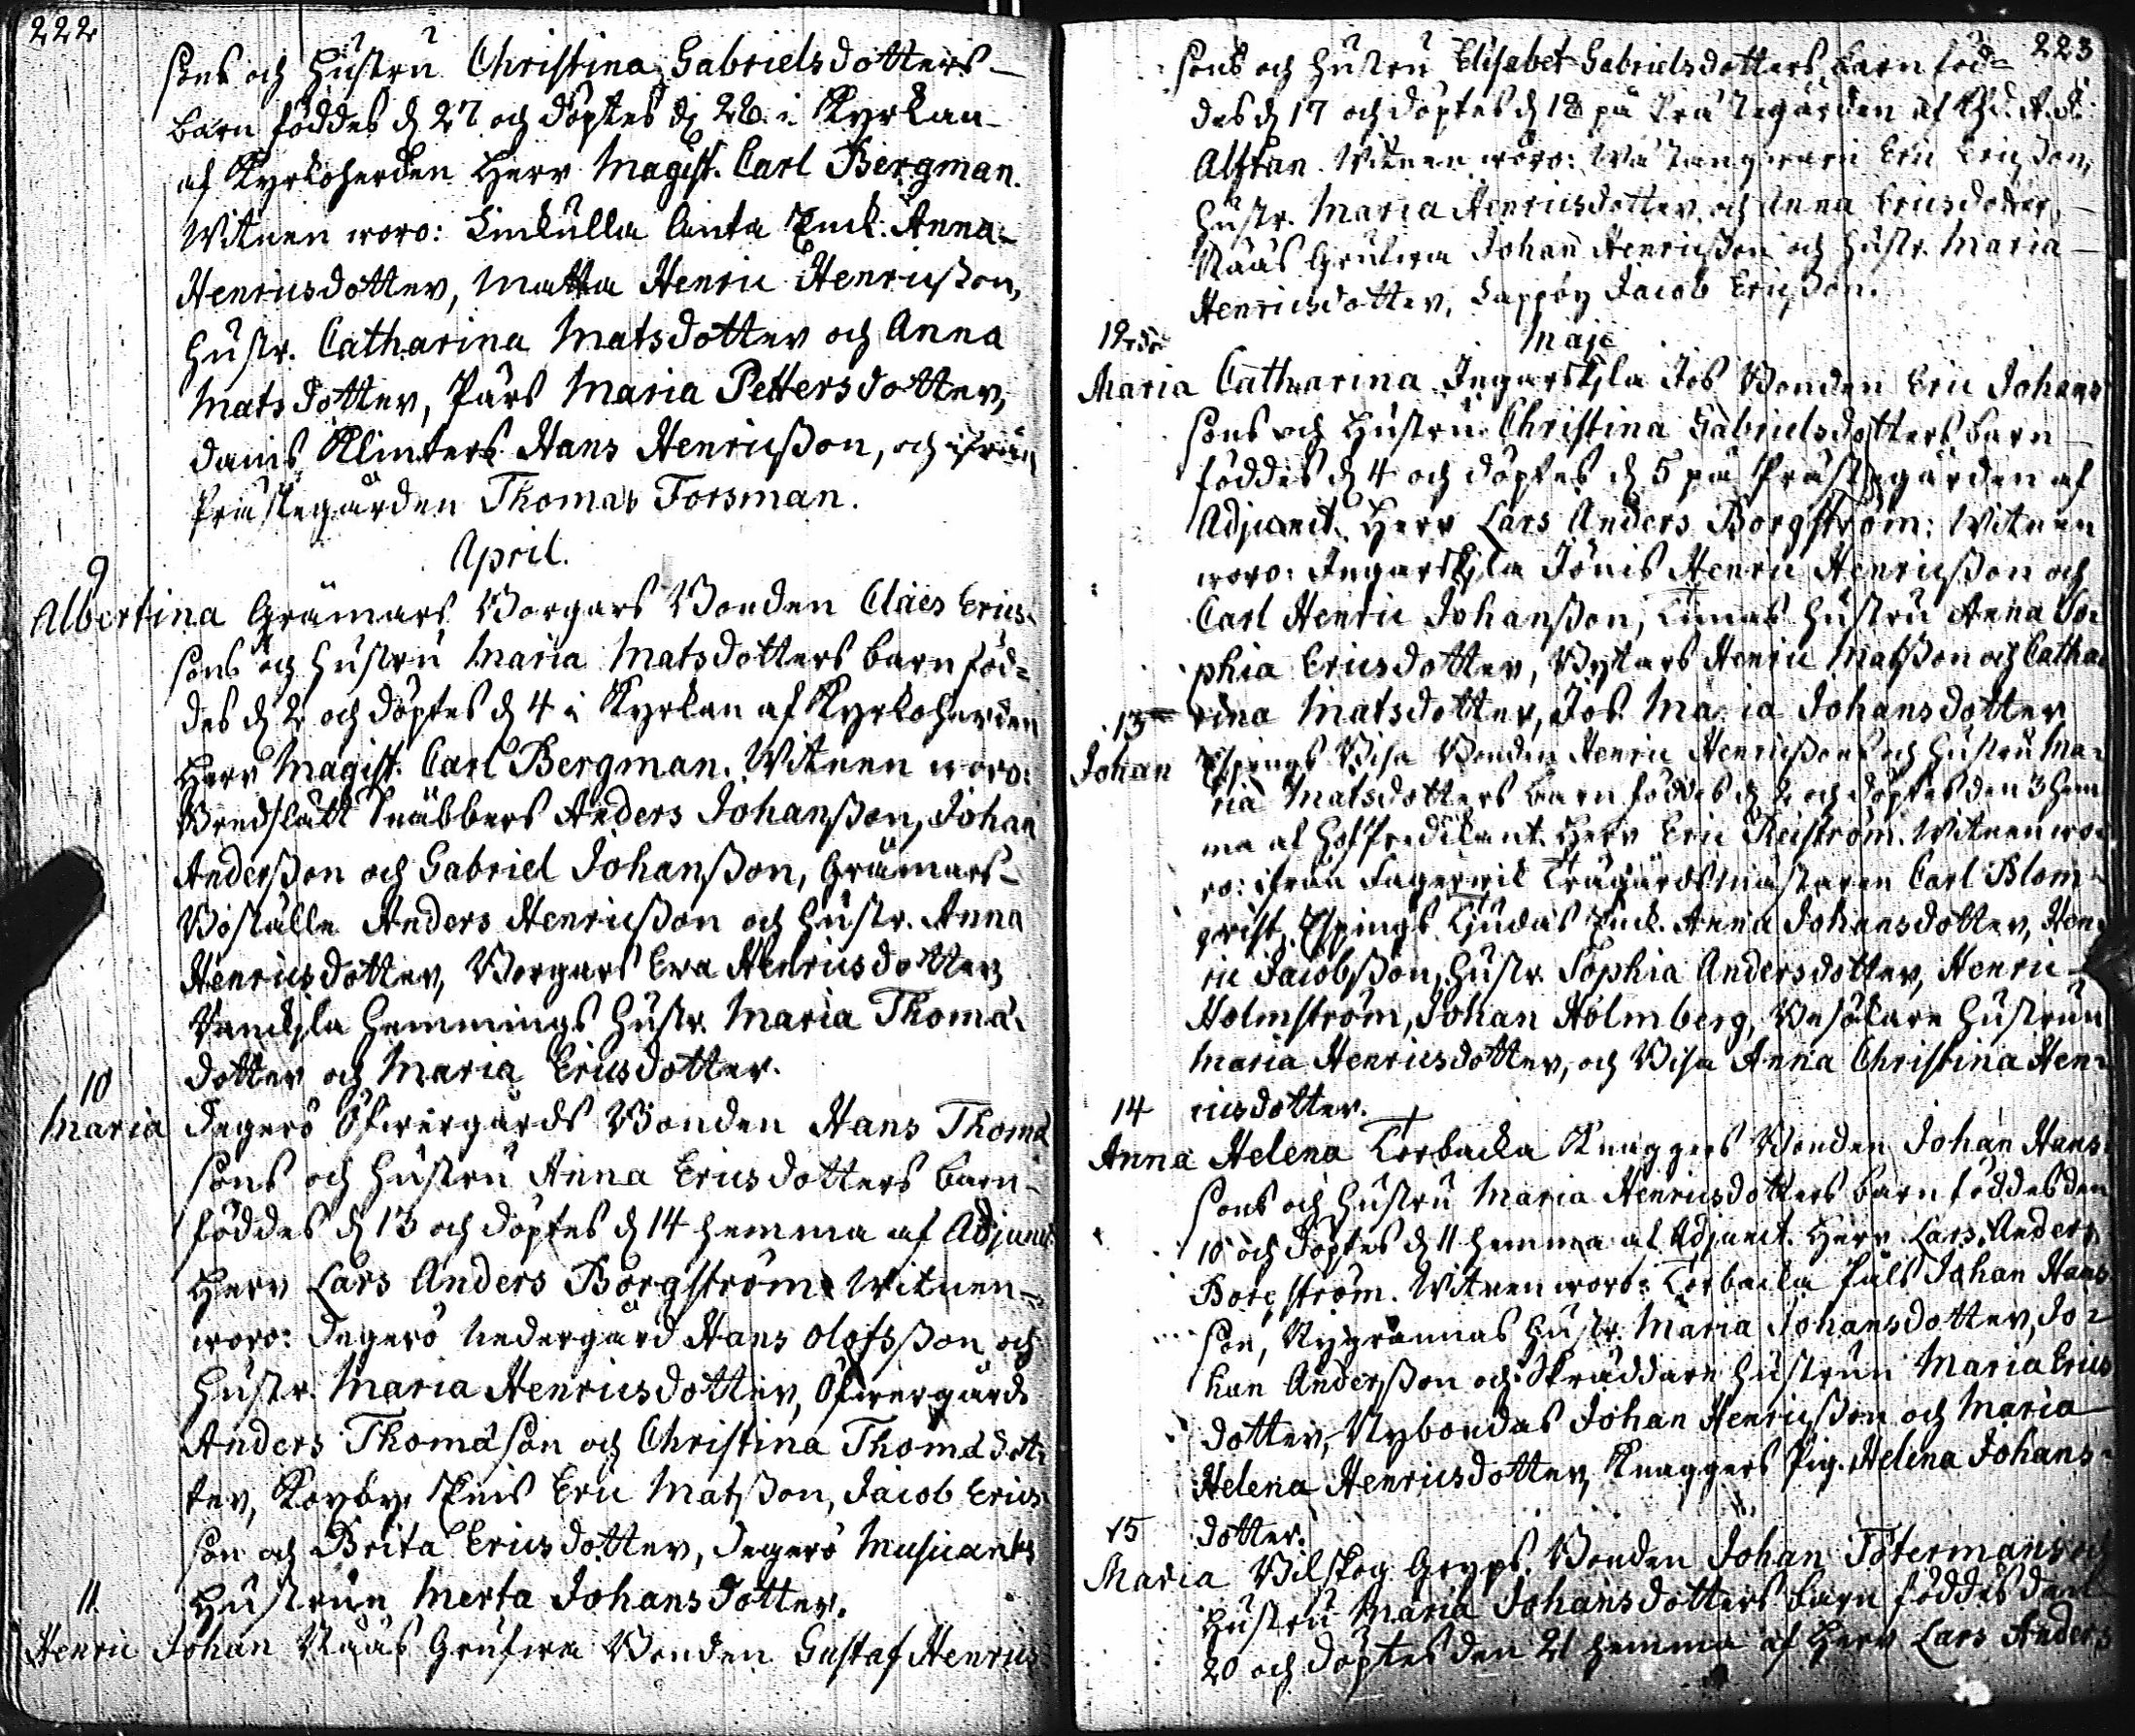 222
sons och Hustru Christina Gabrielsdotters
barn föddes d 27 och döptes d 28 i Kyrkan
af Kyrkoherden Herr Magist. Carl Bergman.
Witnen woro: Enck. Anna
Henricsdotter, Matta Henric Henricsson,
Hustr. Catharina Matsdotter och Anna
Matsdotter, Pärs Maria Pettersdotter,
Klinkers Hans Henricsson, och ifrån
Prästegården Thomas Forsman.
April.
9
Albertina Grämars Borgars Bonden Claes Erics
sons och Hustru Maria Matsdotters barn föd=
des d 2 och döptes d 4 i Kyrkan af Kyrkoherden
Herr Magist. Carl Bergman. Witnen woro:
Snäbbers Anders Johansson, Johan
Andersson och Gabriel Johansson, Grämars
Boställe Anders Henricsson och Hustr. Anna
Henricsdotter, Borgars Eva Henricsdotter
Hemmings Hustr. Maria Thomä
dotter och Maria Ericsdotter.
10
Maria Degerö Öfwergårds Bonden Hans Thomä
sons och Hustru Anna Ericsdotters barn
föddes d 13 och döptes d 14 hemma af Adjunct.
Herr Lars Anders Borgström. Witnen
woro: Degerö Nedergård Hans Olofsson och
Hustr. Maria Henricsdotter, Öfwergårds
Anders Thomäson och Christina Thomädot=
ter, Eric Matsson, Jacob Erics
son och Brita Ericsdotter, Degerö Musicants
Hustrun Merta Johansdotter.
11.
Henric Johan Nääs Grufwa Bonden Gustaf Henrics
223
sons och Hustru Elisabet Gabrielsdotters barn föd=
des d 17 och döptes d 18 på Prästegården af
Alftan. Witnen woro: Eric Ericsson,
Hustr. Maria Henricsdotter och Anna Ericsdotter,
Näås Grufwa Johan Henricsson och Hustr. Maria
Henricsdotter, Jacob Ericsson.
Maji
12
Maria Catharina Ingarskila Jös Bonden Eric Johans
sons och Hustru Christina Gabrielsdotters barn
föddes d 4 och döptes d 5 på Prästegården af
Adjunct. Herr Lars Anders Borgström: Witnen
woro: Ingarskila Jönis Henric Henricsson och
Carl Henric Johansson, Hustru Anna So=
phia Ericsdotter, Bytars Henric Matsson och Catha
rina Matsdotter, Jös Maria Johansdotter
13
Johan Espings Wisa Bonden Henric Henricssons och Hustru Ma=
ria Matsdotters barn föddes d 2 och döptes den 3 hem
ma af Hof Predikant. Herr Eric Reiström. Witnen wo=
ro: ifrån Fagerwik Trägårdsmästaren Carl Blom=
qvist, Espings Enck. Anna Johansdotter, Hen=
ric Jacobsson, Hustr. Sophia Andersdotter, Henric
Holmström, Johan Holmberg, Hustrun
Maria Henricsdotter, och Wisa Anna Christina Hen=
ricsdotter.
14
Anna Helena Torbacka Knaggers Bonden Johan Hans
sons och Hustru Maria Henricsdotters barn föddes den
10 och döptes d 11 hemma af Adjunct. Herr Lars Anders
Borgström. Witnen woro: Torbacka Påls Johan Hans
son, Nygrannas Hustr. Maria Johansdotter, Jo=
han Andersson och Skräddare Hustrun Maria Erics
dotter, Nybondas Johan Henricsson och Maria
Helena Henricsdotter, Knaggers Pig. Helena Johans=
dotter.
15
Maria Wilskog Gryps Bonden Johan Fotermans och
Hustru Maria Johansdotters barn föddes den
20 och döptes den 21 hemma af Herr Lars Anders